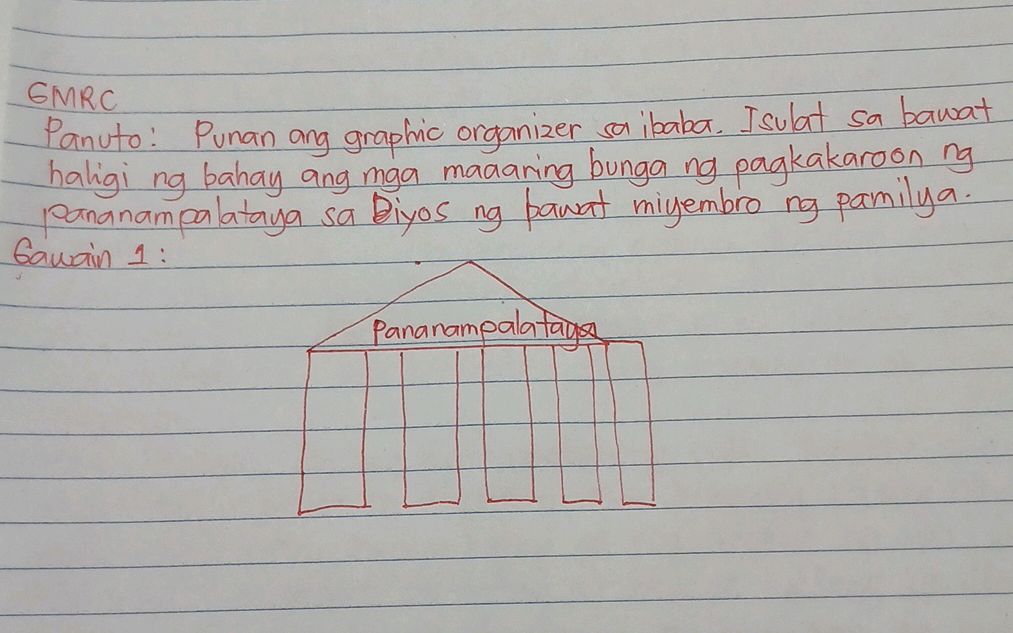 GMRC
Panuto: Punan ang graphic organizer sa ibaba. Isulat sa bawat
haligi ng bahay ang mga maaaring bunga ng pagkakaroon ng
pananampalataya sa Diyos ng bawat miyembro ng pamilya.
Gawain 1:
Pananampalataya